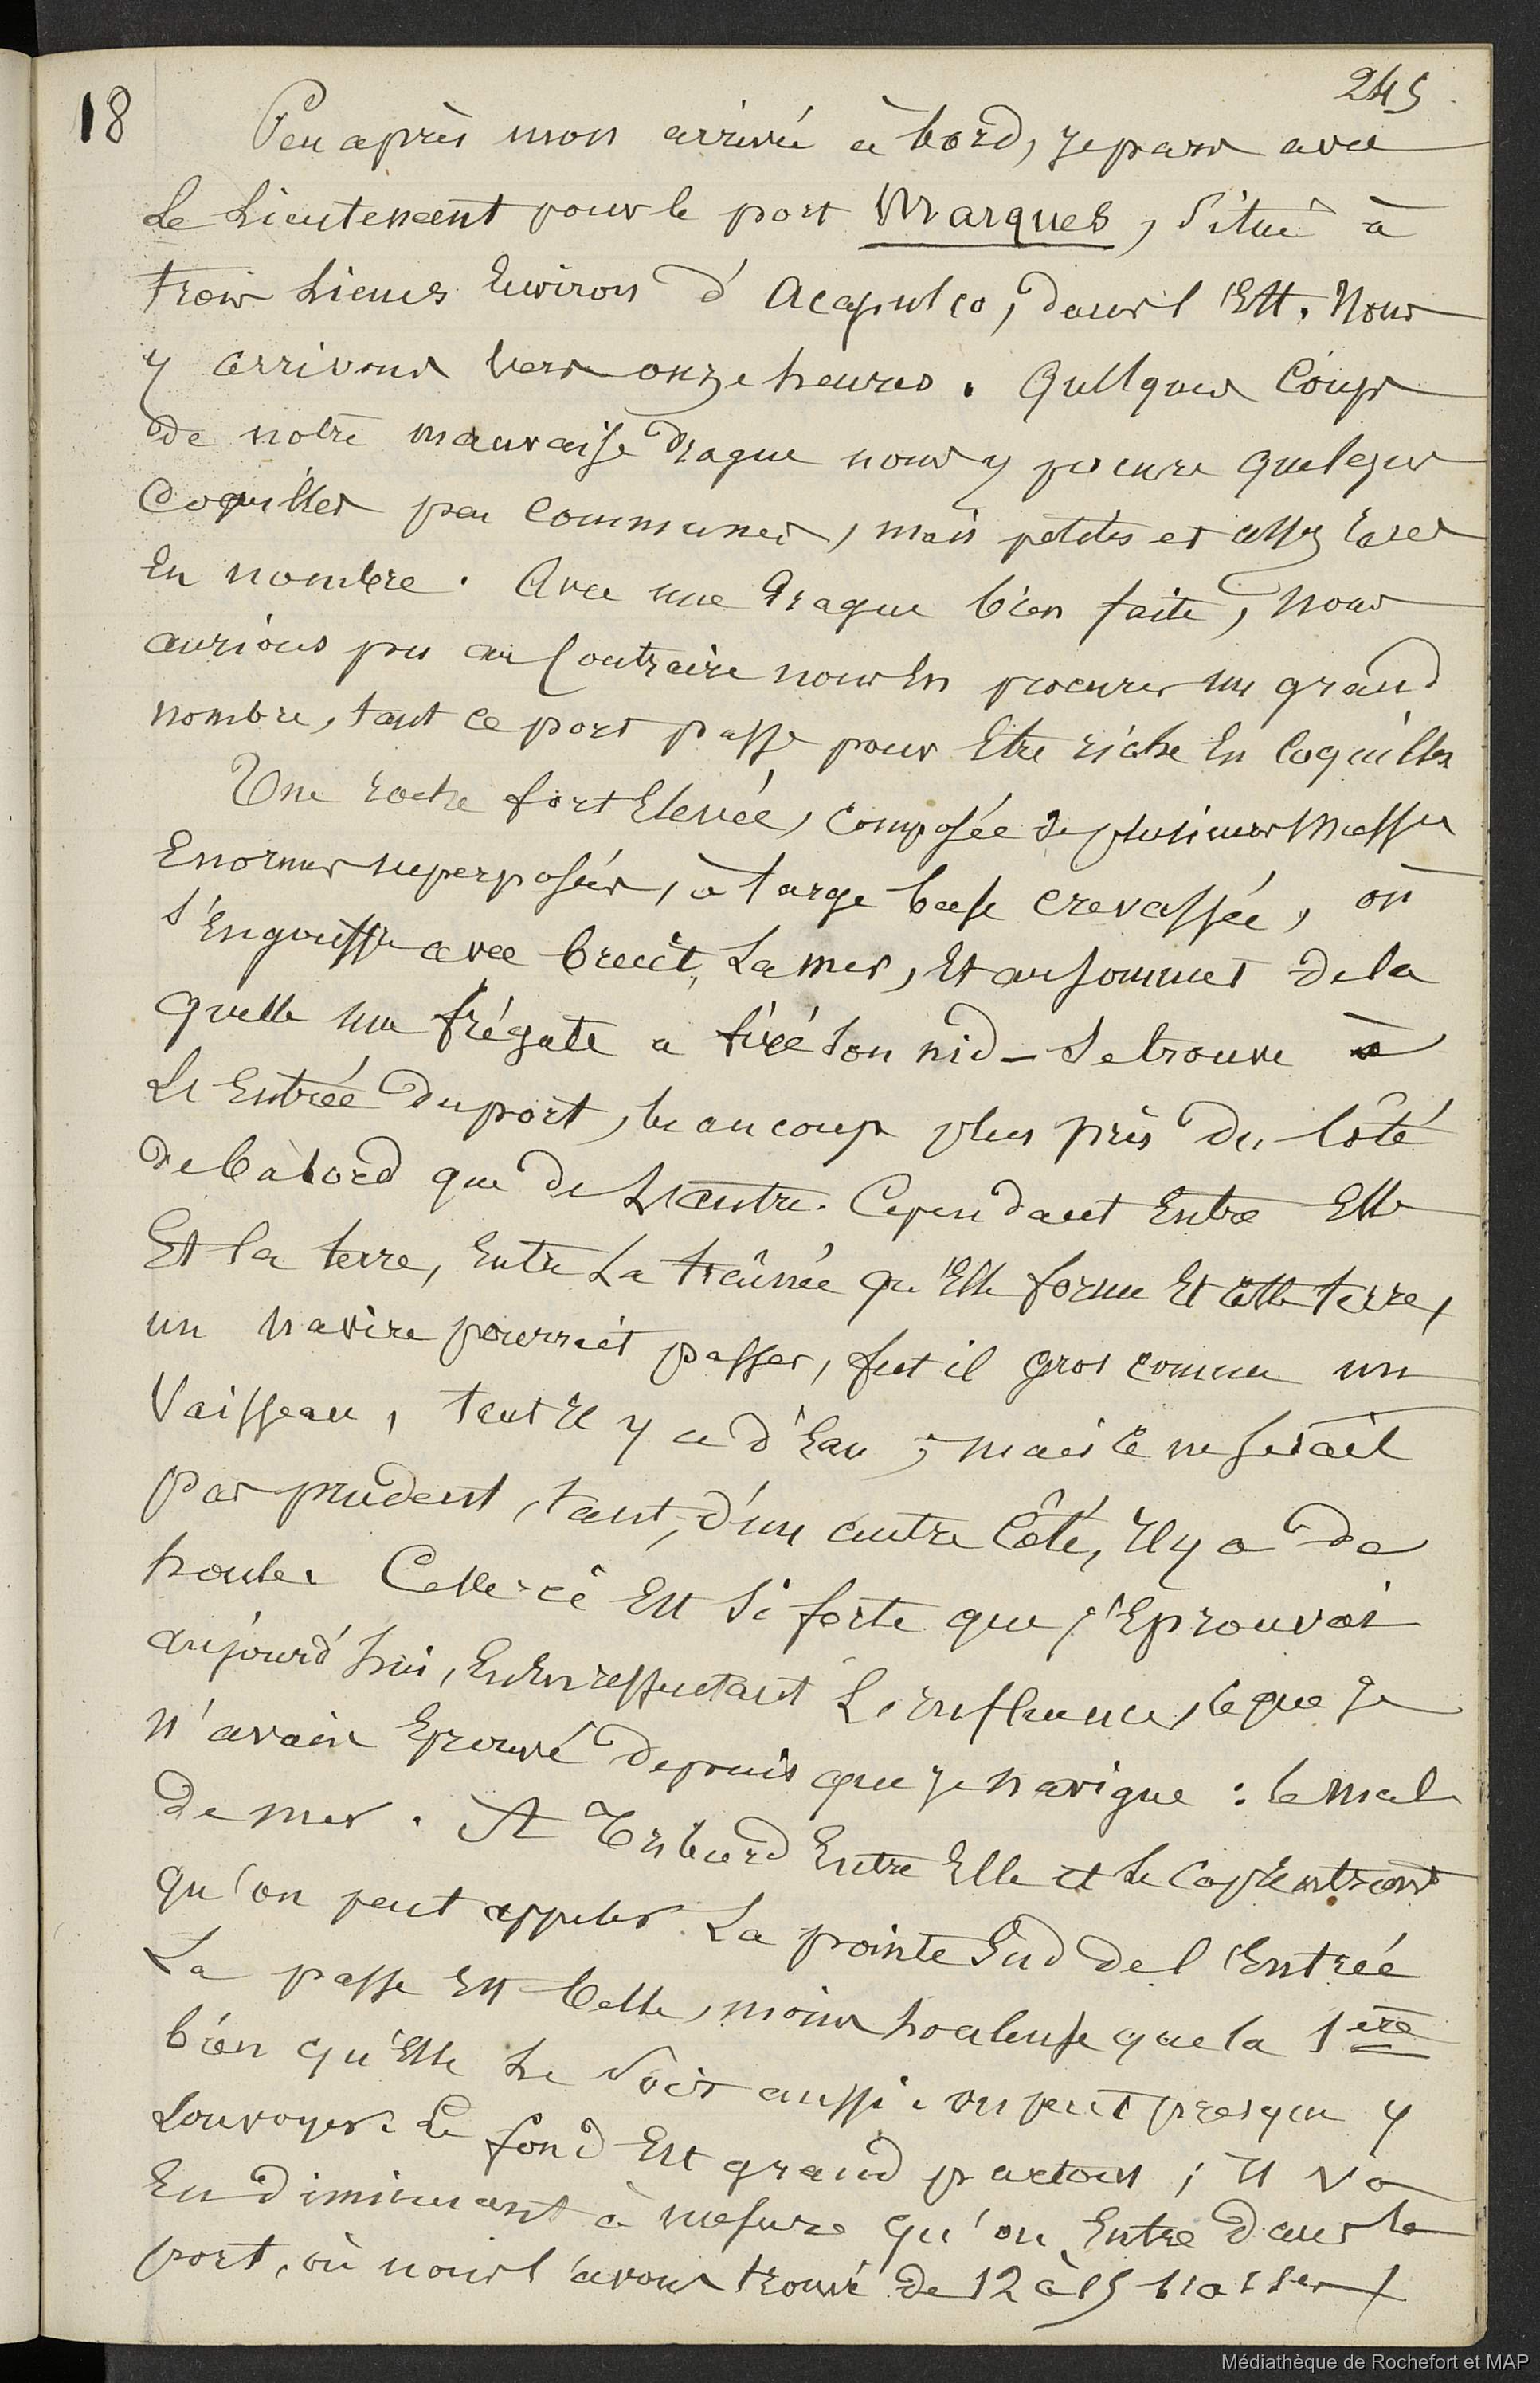 245
18
Peu après mon arrivée à bord, je pars avec
Le Lieutenant pour le port Marques, situé à
trois Lieues Environ d'Acapulco, dans l'Est. Nous
y arrivons vers onze heures. Quelques Coups
de notre mauvaise Drague nous y procure quelques
Coquilles peu Communes, mais petites et assez rares
En nombre. Avec une Drague bien faite, nous
aurions pu au Contraire nous En procurer un grand
nombre, tant ce port passe pour Etre riche En Coquilles
Une roche fort Elevée, composée de plusieurs Masses
Enormes superposées, à large base crevassée, où
s'Engouffre avec bruit, La mer, Et au sommet de la
quelle une frégate a fixé son nid - se trouve à
L'Entrée du port, beaucoup plus près du Côté
de babord que de L'autre. Cependant Entre Elle
Et la terre, Entre La traînée qu'Elle forme Et cette terre,
un navire pourrait passer, fut il gros comme un
Vaisseau, tant il y a d'Eau ; mais ce ne serait
pas prudent, tant, d'un autre Côté, Il y a de
houle. Celle-ci Est si forte que j'Eprouvai
aujourd'hui, En En ressentant L'influence, ce que je
n'avais Eprouvé depuis que je navigue : le mal
de mer. A Tribord Entre Elle et Le Cap Entrant
qu'on peut appeler La pointe Sud de l'Entrée
La passe Est belle, moins houleuse que la 1ere
bien qu'Elle Le soit aussi. on peut presque y
Louvoyer. Le fond Est grand partout ; Il va
En diminuant à mesure qu'on Entre dans le
port, où nous l'avons trouvé de 12 à 15 brasses
Médiathèque de Rochefort et MAP